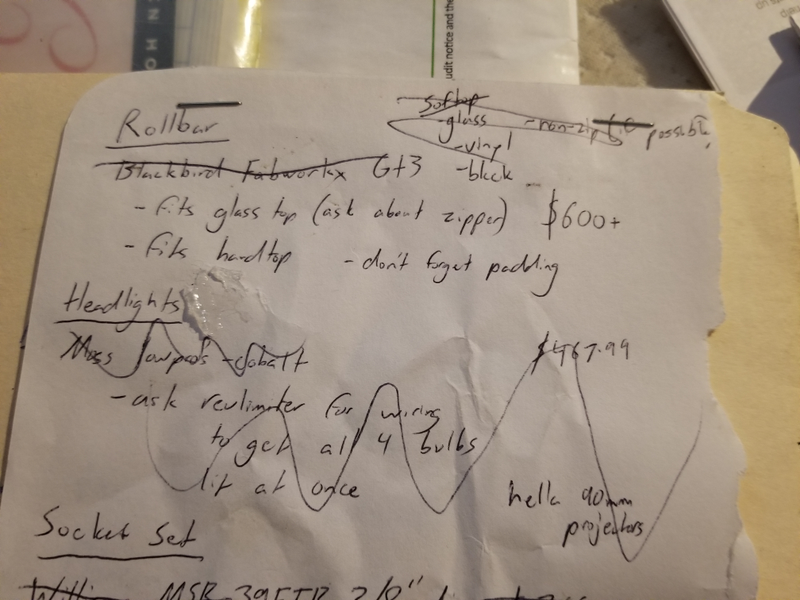 udit notice and the
Softop
-glass -non-zip possible
-vinyl
-blck
Rollbar
Blackbird Fabworkx Gt3
- fits glass top (ask about zipper) $600+
- fits hardtop - don't forget padding
Headlights
Moss lowpods - cobalt $467.99
- ask revlimiter for wiring
to get all 4 bulbs
lit at once
hella 90mm
projectors
Socket Set